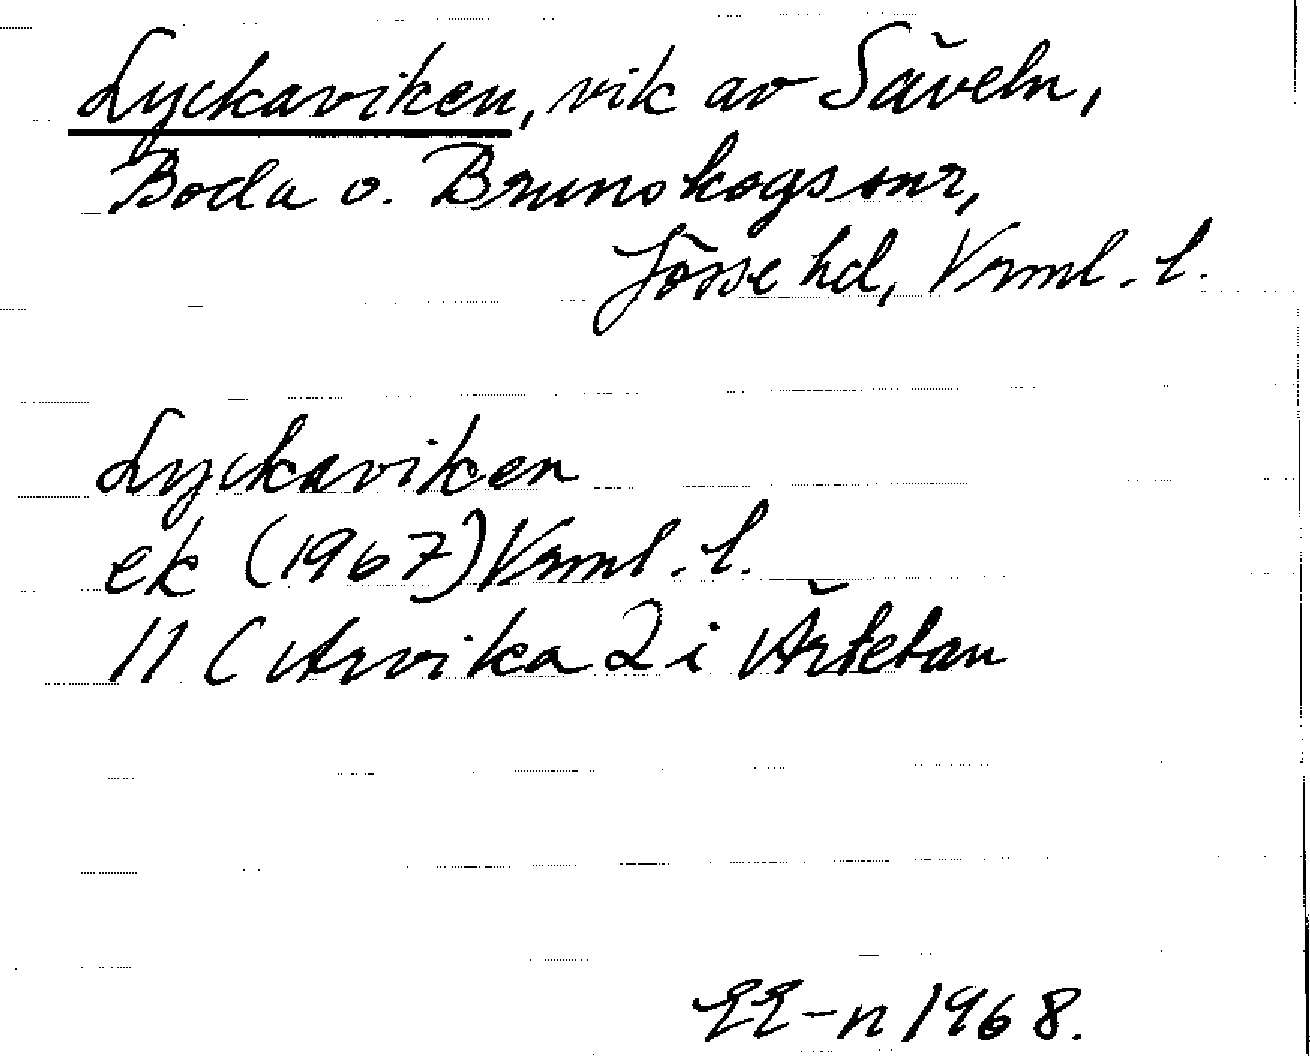 Lyckaviken, vik av Säveln,
Boda o. Brunskogs snr,
Jösse hd, Vrml. l.
Lyckaviken
ek (1967) Vrml. l.
11 C Arvika 2 i Ärtetan
EE-n 1968.